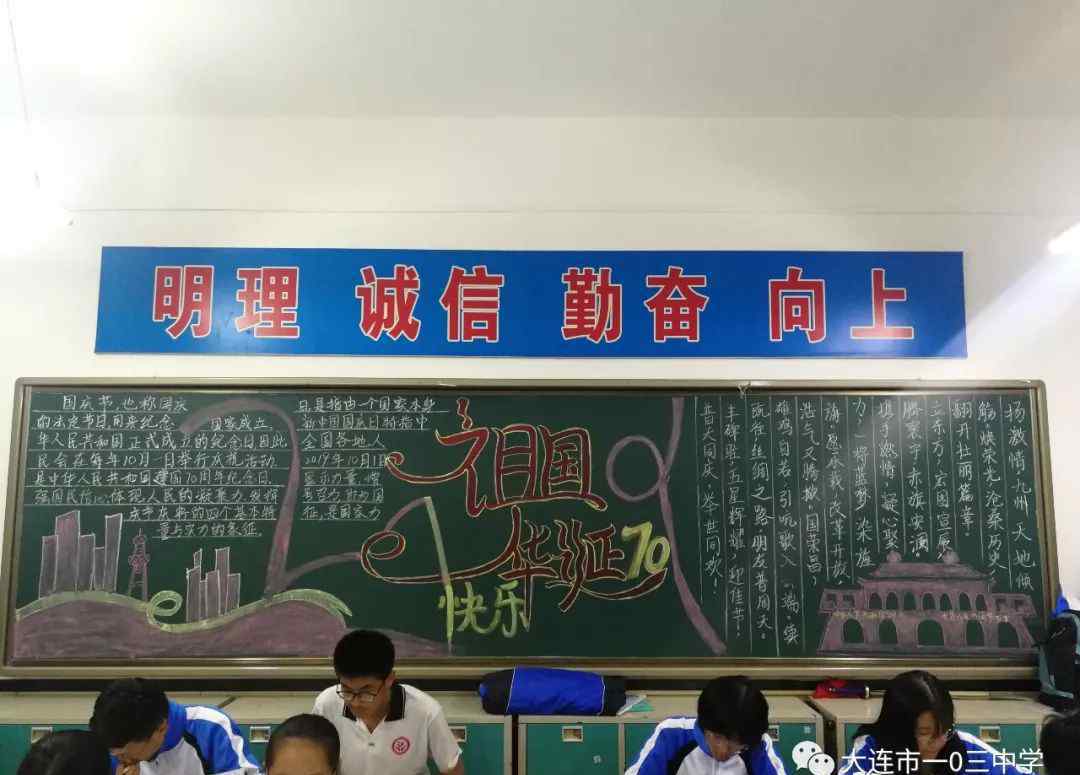 明理 诚信 勤奋 向上
国庆节,也称国庆
的法定节日,用来纪念 国家成立,
华人民共和国正式成立的纪念日,因此
民会在每年10月一日举行庆祝活动.
是中华人民共和国建国70周年纪念日.
强国民信心体现人民的凝聚力,发挥
庆 的四个基本特
量与实力的象征.
日,是指由一个国家
新中国国庆日特指中
全国各地人
2019年10月1日
显示力量,增
征,是国家力
祖国
华诞70
快乐
扬激情九州,天地倾
荣光,沧桑历史
翻开壮丽篇章.
立东方,宏图
寰宇,赤旗安
激情,凝心聚
力,一抹蓝梦染
改革开放
浩气又腾
雄鸡自若,引吭歌
丝绸之路,朋友普周天.
丰碑 五星辉耀,迎佳节.
普天同庆,举世同欢!
大连市一0三中学